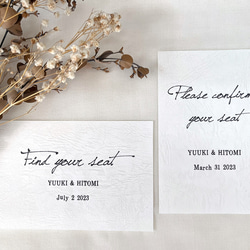 Find your seat
YUUKI & HITOMI
July 2 2023
Please confirm
your seat
YUUKI & HITOMI
March 31 2023